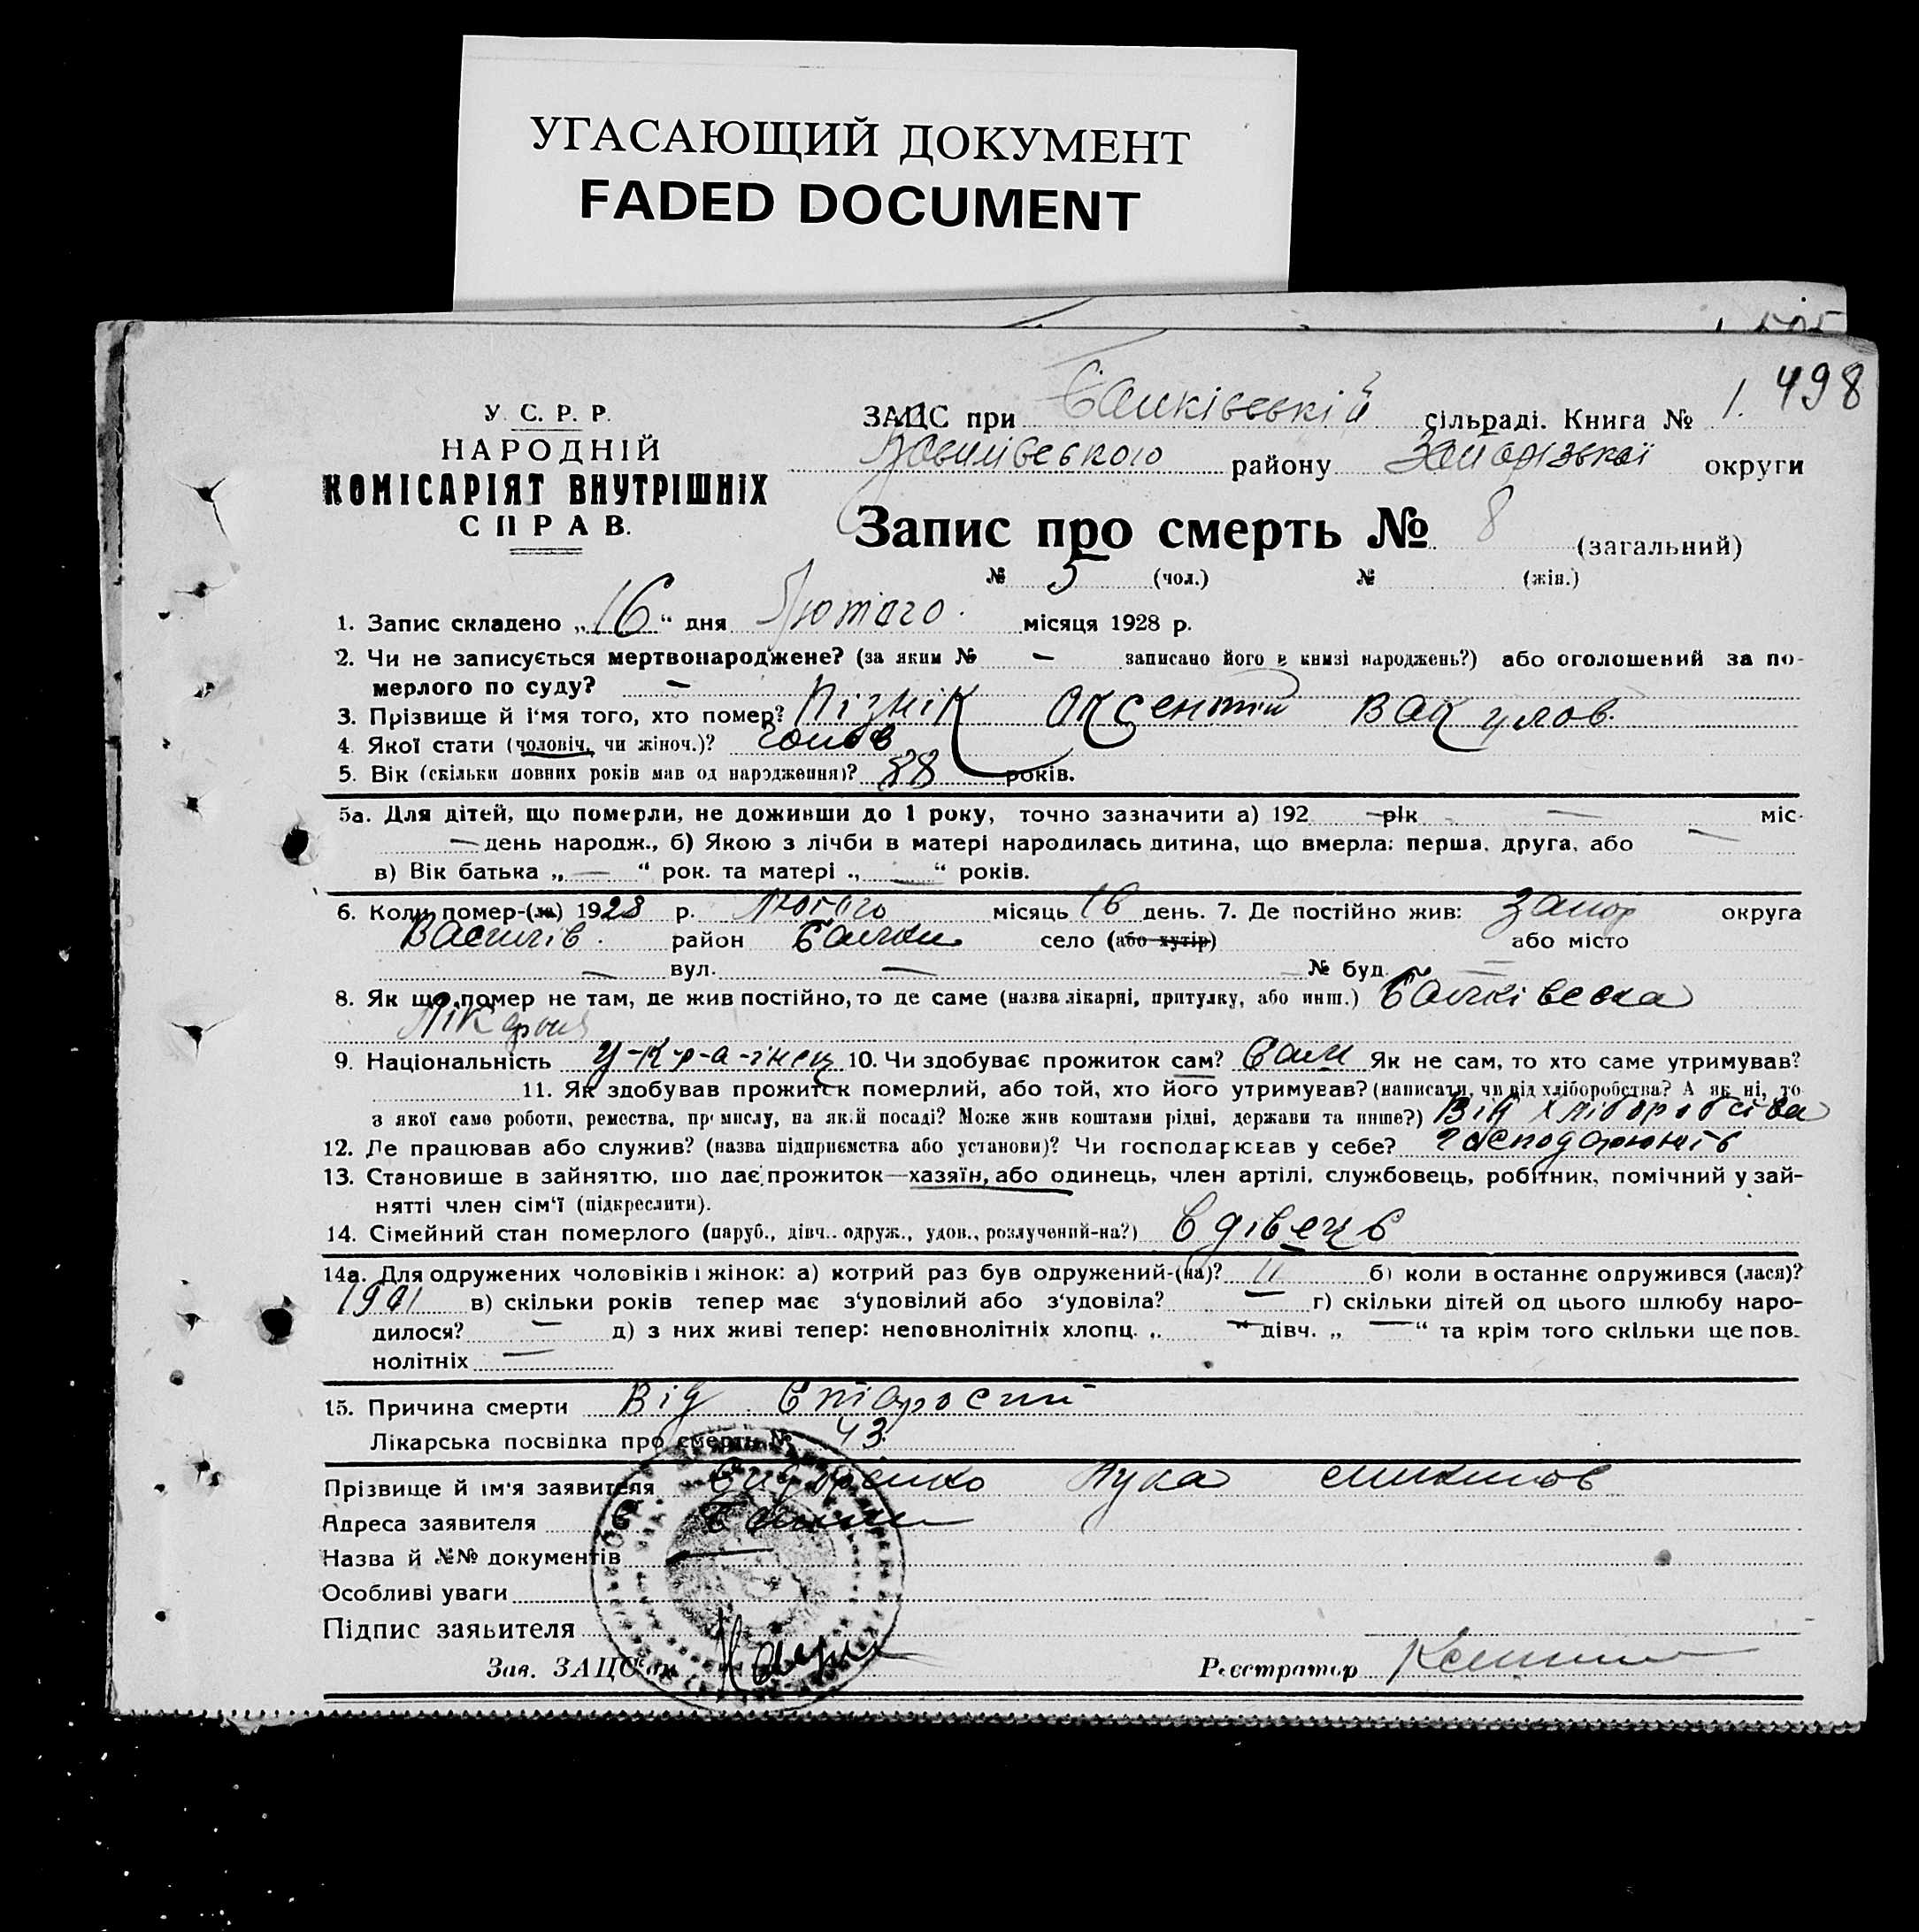 УГАСАЮЩИЙ ДОКУМЕНТ
FADED DOCUMENT
498
У. С. Р. Р.
НАРОДНІЙ
КОМІСАРІЯТ ВНУТРІШНІХ
СПРАВ.
ЗАЦС при Балківській сільраді. Книга № 1.
Василівського району Запорізької округи
Запис про смерть № 8 (загальний)
№ 5 (чол.) № (жін.)
1. Запис складено „16“ дня Лютого місяця 1928 р.
2. Чи не записується мертвонароджене? (за яким № — записано його в книзі народжень?) або оголошений за по-
мерлого по суду? —
3. Прізвище й і'мя того, хто помер? Пізнік Оксентій Вакулов.
4. Якої стати (чоловіч. чи жіноч.)?
5. Вік (скільки повних років мав од народження)? 88 років.
5а. Для дітей, що померли, не доживши до 1 року, точно зазначити а) 192 — рік — міс.
— день народж., б) Якою з лічби в матері народилась дитина, що вмерла: перша, друга, або —
в) Вік батька „—“ рок. та матері „—“ років.
6. Коли помер-(ла) 1928 р. Лютого місяць 16 день. 7. Де постійно жив: Запор округа
Василів. район Балки село (або хутір) або місто
— вул. — № буд. —
8. Як що помер не там, де жив постійно, то де саме (назва лікарні, притулку, або инш.) Балківська
Лікарня
9. Національність у-к-р-а-інец 10. Чи здобуває прожиток сам? Сам Як не сам, то хто саме утримував?
11. Як здобував прожиток померлий, або той, хто його утримував? (написати, чи від хліборобства? А як ні, то
з якої саме роботи, ремества, промислу, на якій посаді? Може жив коштами рідні, держави та инше?) Від хліборобства
12. Де працював або служив? (назва підприємства або установи)? Чи господарював у себе?
13. Становище в зайняттю, що дає прожиток—хазяїн, або одинець, член артілі, службовець, робітник, помічний у зай-
нятті член сім'ї (підкреслити).
14. Сімейний стан померлого (паруб., дівч., одруж., удов., розлучений-на?) вдівець
14а. Для одружених чоловіків і жінок: а) котрий раз був одружений-(на)? II б) коли востаннє одружився (лася)?
в) скільки років тепер має з'удовілий або з'удовіла? — г) скільки дітей од цього шлюбу наро-
дилося? — д) з них живі тепер: неповнолітніх хлопц. „—“ дівч. „—“ та крім того скільки ще пов-
нолітніх —
15. Причина смерти Від старости
Лікарська посвідка про смерть № 43
Прізвище й ім'я заявителя Лука
Адреса заявителя с. Балки
Назва й №№ документів —
Особливі уваги
Підпис заявителя
Зав. ЗАЦС'ом Реєстратор